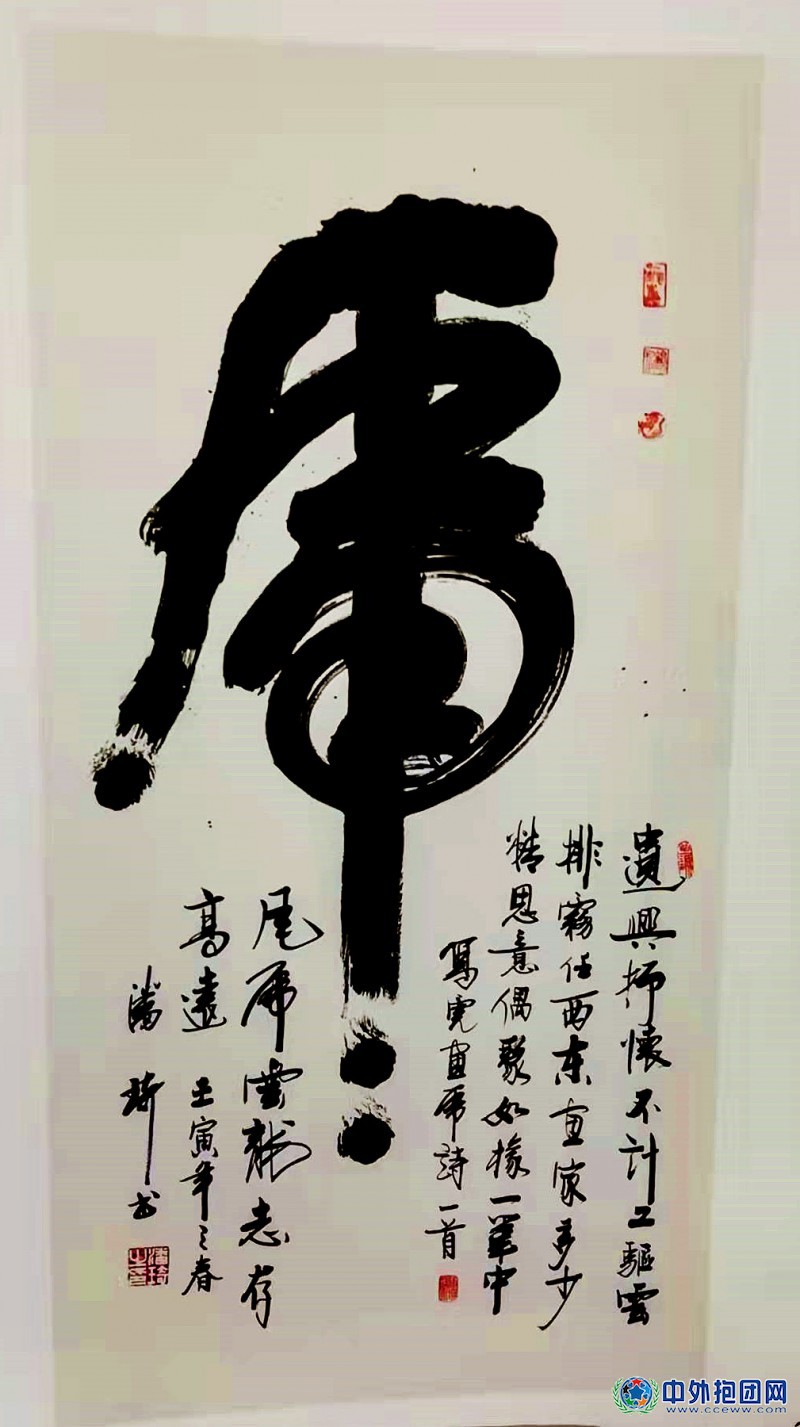 虎
遣興抒懷不計工驅雲
排霧任西東畫家多少
精思意偶聚如椽一筆中
寫完畫虎詩一首
尾虎雲龍志存
高遠 壬寅年之春
潘琦书
潘琦之印
中外抱团网
www.cceww.com